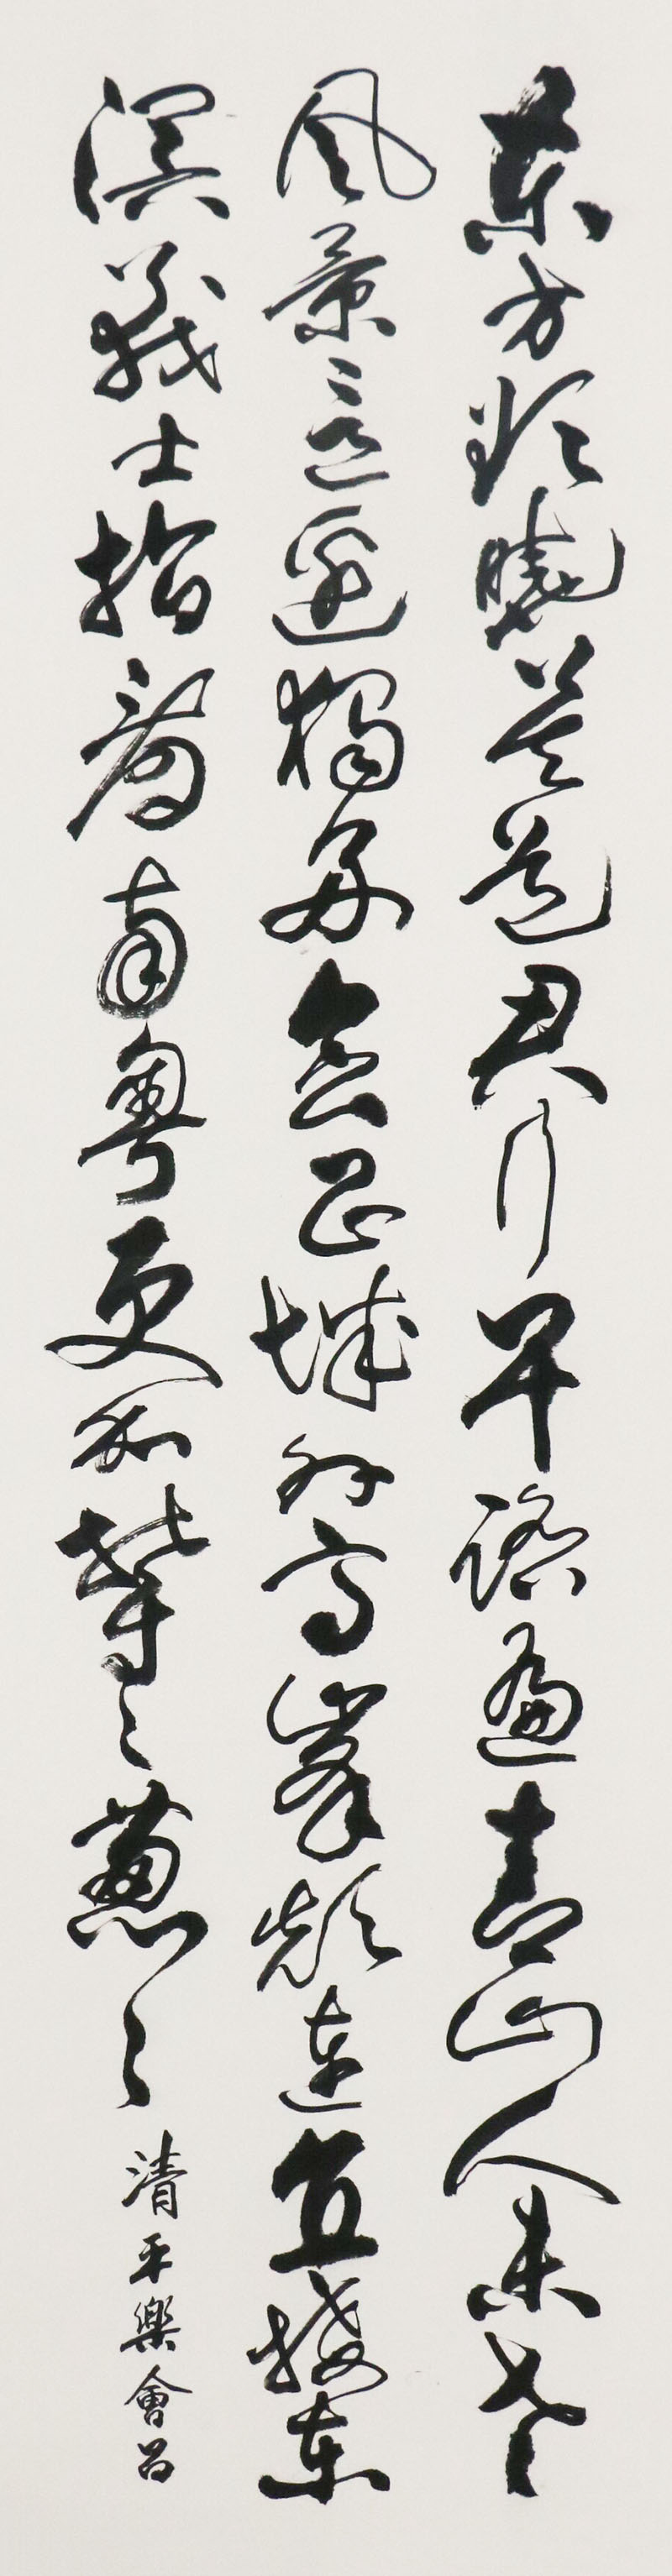 東方欲曉莫道君行早踏遍青山人未老
風景這邊獨好會昌城外高峯顛連直接東
溟戰士指看南粵更加鬱々蔥々
清平樂會昌